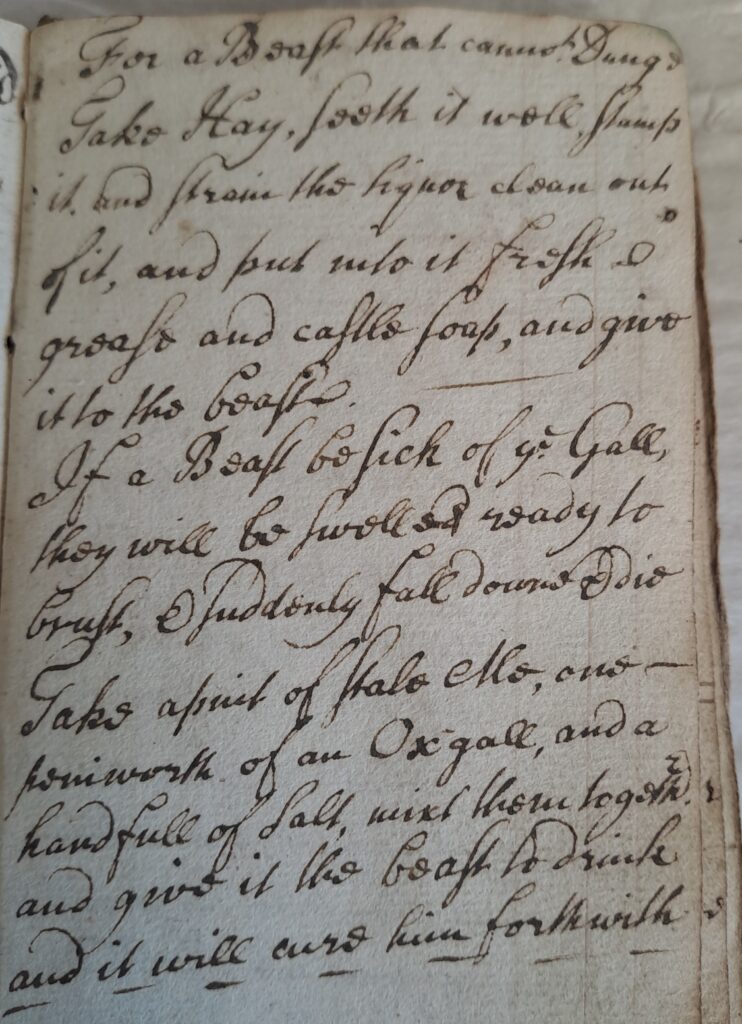 For a Beast that cannot Dunge
Take Hay, seeth it well, stamp
it, and strain the liquor clean out
of it, and put into it fresh
grease and castle soap, and give
it to the beast.
If a Beast be sick of yᵉ Gall,
they will be swelled ready to
brust, & suddenly fall downe & die
Take a pint of stale Ale, one —
peniworth of an Ox gall, and a
handfull of Salt, mixt them togethʳ
and give it the beast to drink
and it will cure him forthwith